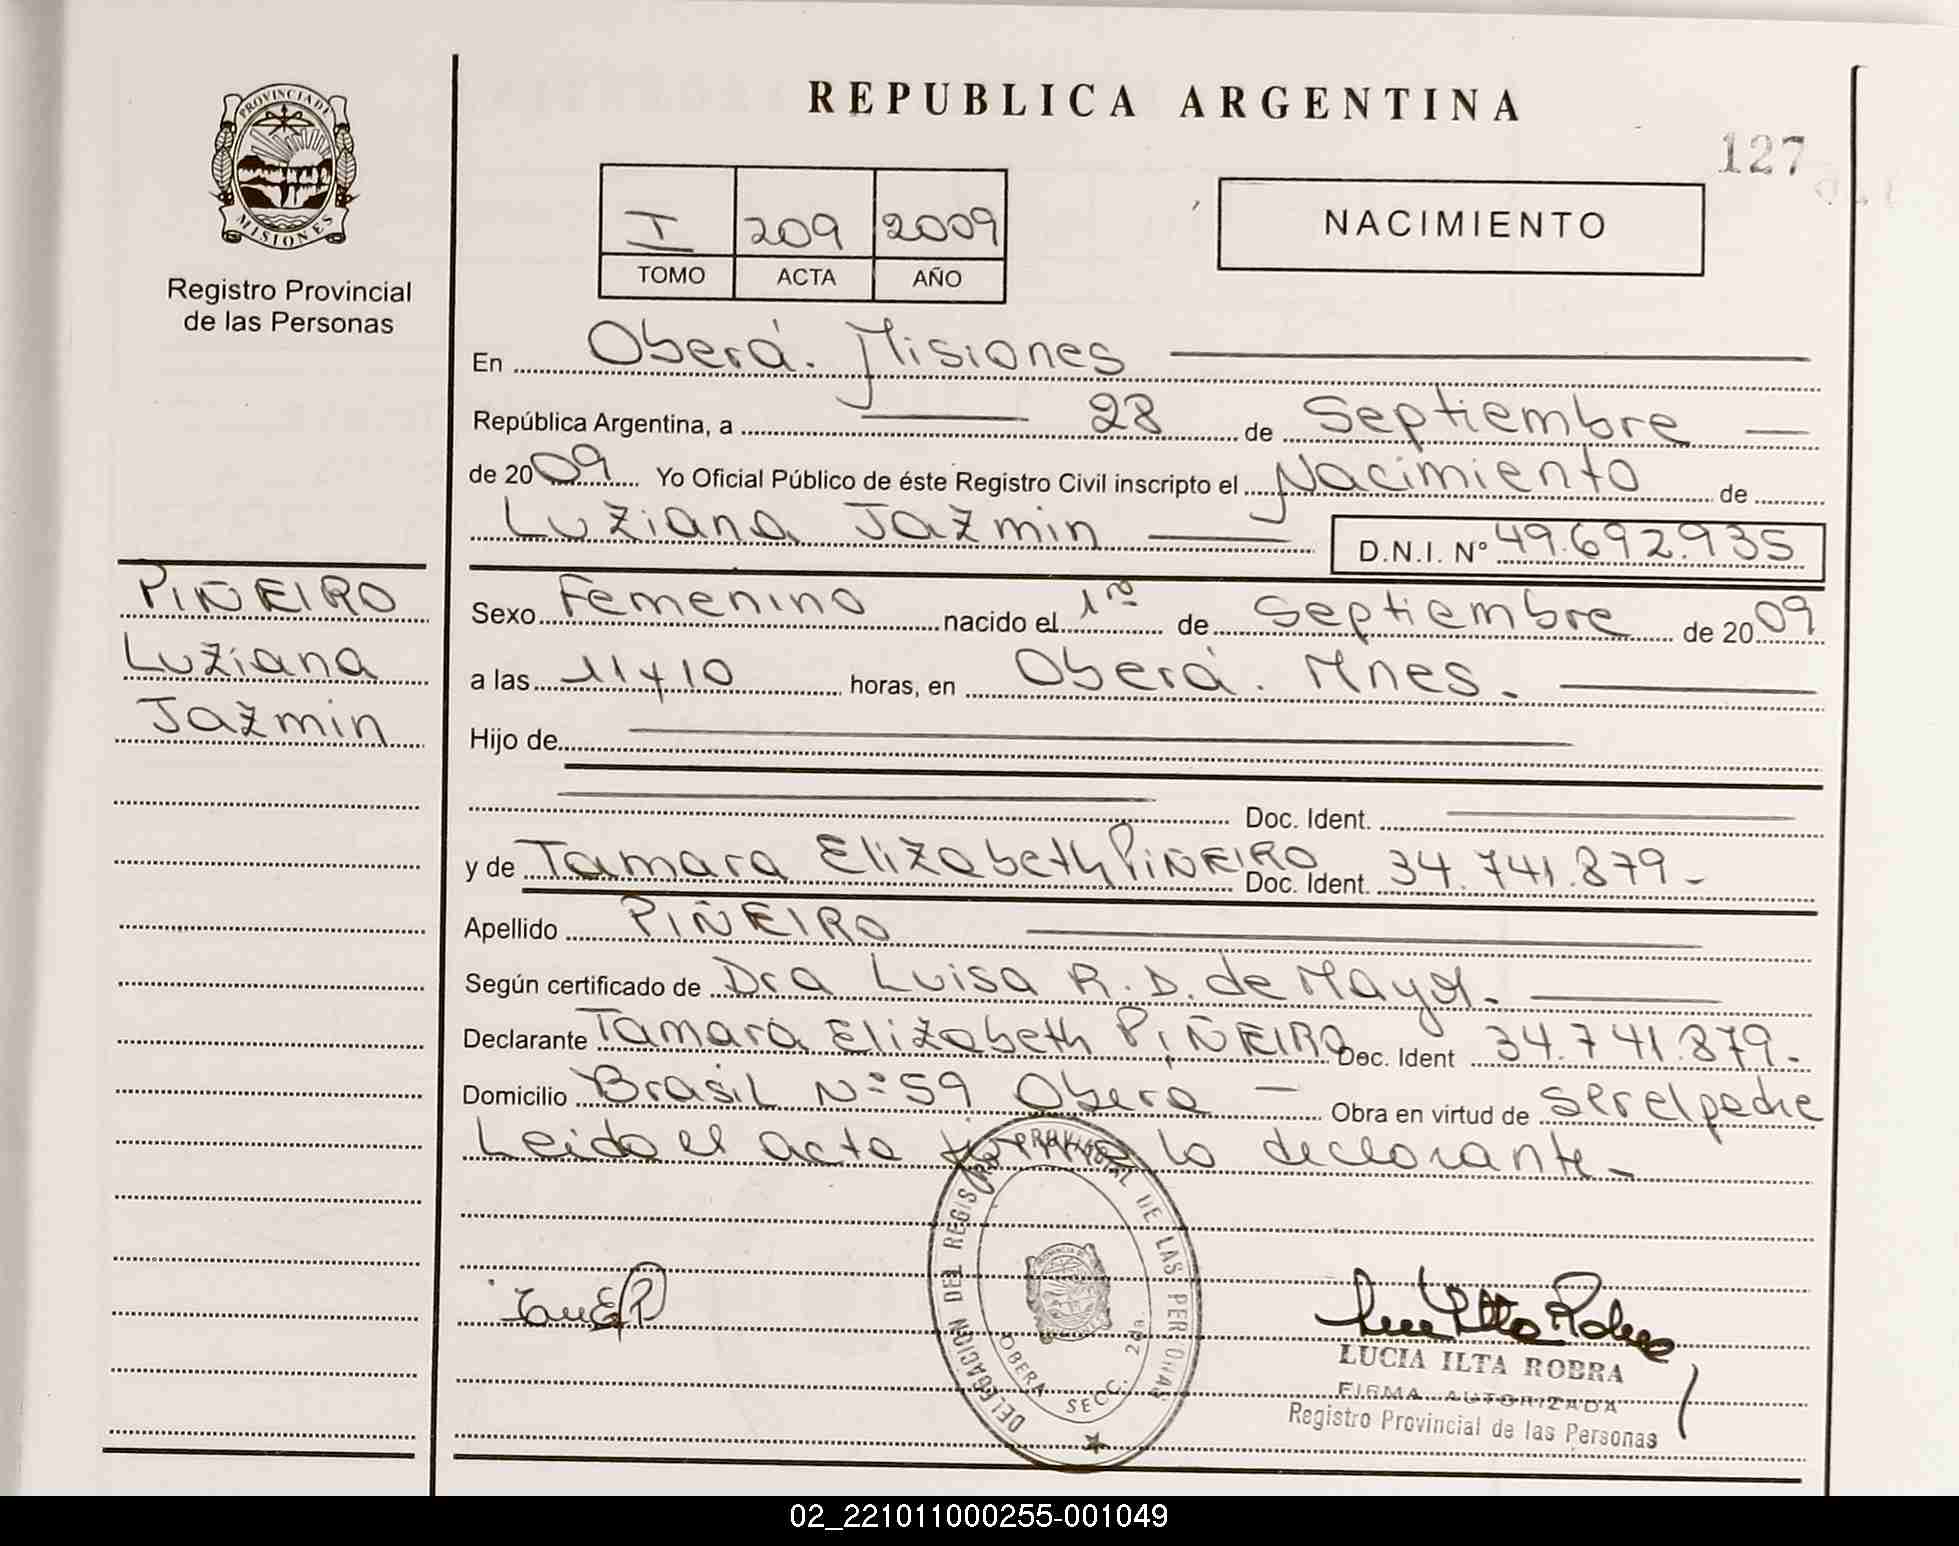 REPUBLICA ARGENTINA
127
PROVINCIA DE
MISIONES
Registro Provincial
de las Personas
I 209 2009
TOMO ACTA AÑO
NACIMIENTO
En Oberá. Misiones
República Argentina, a 28 de Septiembre
de 2009 Yo Oficial Público de éste Registro Civil inscripto el Nacimiento de
Luziana Jazmin D.N.I. Nº 49.692.935
PIÑEIRO
Luziana
Jazmin
Sexo Femenino nacido el 1ro de Septiembre de 2009
a las 11 y 10 horas, en Oberá. Mnes.
Hijo de
Doc. Ident.
y de Tamara Elizabeth PIÑEIRO Doc. Ident. 34.741.879-
Apellido PIÑEIRO
Según certificado de Dra Luisa R. D. de Mayol.
Declarante Tamara Elizabeth PIÑEIRO Doc. Ident 34.741.879-
Domicilio Brasil Nº 59 Obera - Obra en virtud de ser el padre
Leido el acta firma la declarante-
DELEGACION DEL REGISTRO PROVINCIAL DE LAS PERSONAS
OBERA SECC. 2da.
LUCIA ILTA ROBRA
FIRMA AUTORIZADA
Registro Provincial de las Personas
02_221011000255-001049